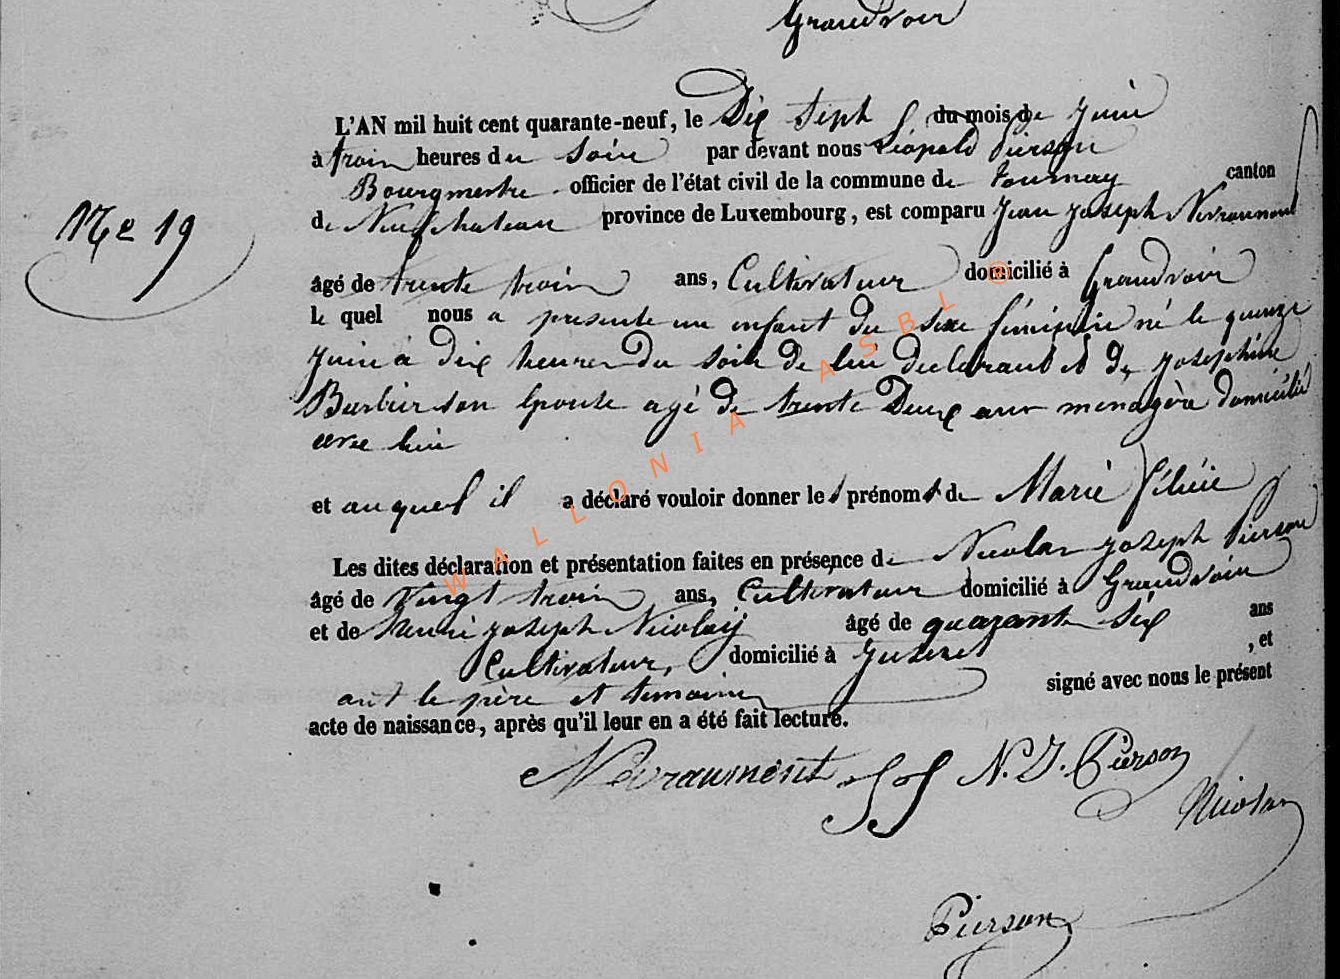 Grandvoir
L'AN mil huit cent quarante-neuf, le Dix Sept du mois de Juin
à trois heures du Soir par devant nous Léopold Pierson
Bourgmestre officier de l'état civil de la commune de tournay canton
N° 19
de Neufchateau province de Luxembourg, est comparu Jean Joseph Nevraumont
âgé de trente trois ans, Cultivateur domicilié à Grandvoir
le quel nous a presenté un enfant du sexe féminin né le quinze
Juin à dix heures du Soir de lui déclarant et de Josephine
Barbier son épouse agé de trente Deux ans menagère domicilié
avec lui
et auquel il a déclaré vouloir donner les prénoms de Marie Félicie
Les dites déclaration et présentation faites en présence de Nicolas Joseph Pierson
âgé de Vingt trois ans, Cultivateur domicilié à Grandvoir
et de Henri Joseph Nicolaij âgé de quarante six ans
Cultivateur, domicilié à Juseret , et
ont le père et temoins signé avec nous le présent
acte de naissance, après qu'il leur en a été fait lecture.
Nevraumont N. J. Pierson
Nicolay
Pierson
WALLONIA ASBL ©